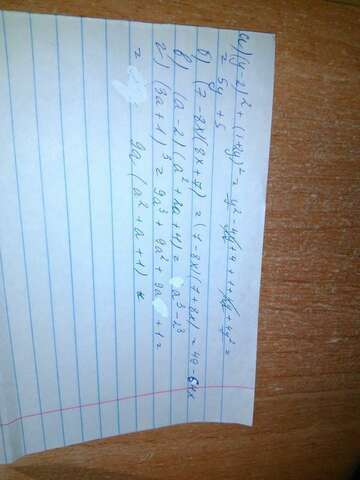 а) (y-2)² + (1+2y)² = y² - 4y + 4 + 1 + 4y + 4y² =
= 5y + 5
б) (7 - 8x)(8x+7) = (7-8x)(7+8x) = 49 - 64x
в) (a-2)(a²+2a+4) = a³ - 2³
г) (3a+1)³ = 9a³ + 9a² + 9a + 1 =
= 9a (a² + a + 1)